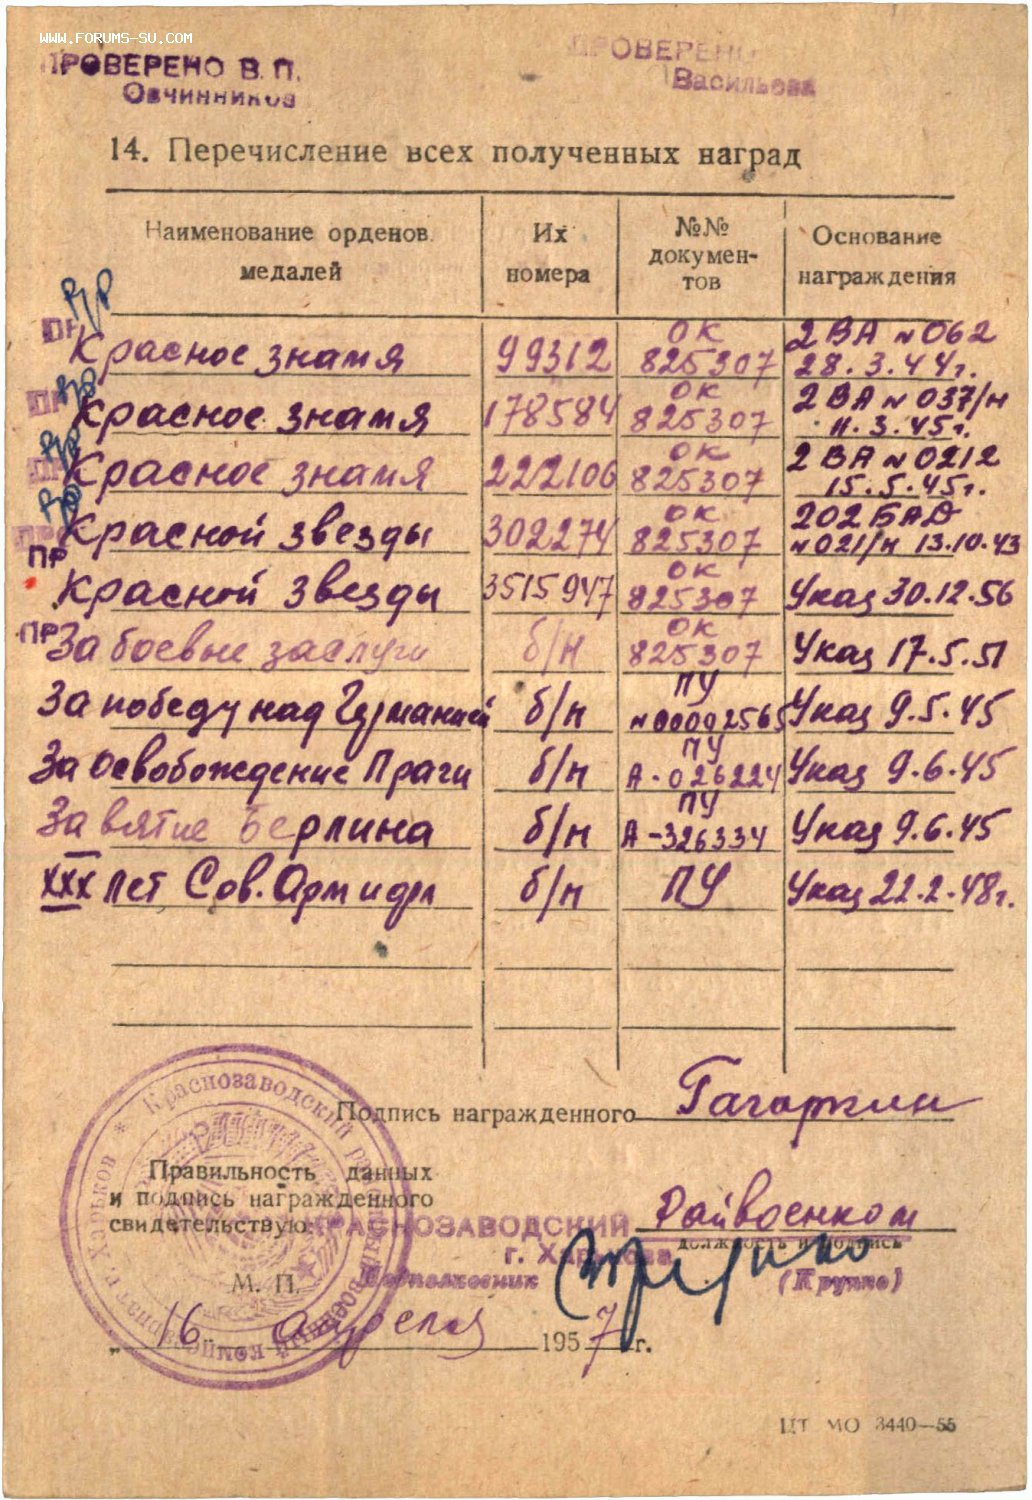 WWW.FORUMS-SU.COM
ПРОВЕРЕНО В. П.
Овчинников
ПРОВЕРЕНО
Васильева
14. Перечисление всех полученных наград
Наименование орденов, медалей | Их номера | №№ докумен-тов | Основание награждения
ПР Красное знамя | 99312 | ОК 825307 | 2 ВА № 062 28.3.44г.
ПР Красное знамя | 178584 | ОК 825307 | 2 ВА № 037/н 11.3.45г.
ПР Красное знамя | 222106 | ОК 825307 | 2 ВА № 0212 15.5.45г.
ПР Красной звезды | 302274 | ОК 825307 | 202 БАД № 021/н 13.10.43
ПР Красной звезды | 3515947 | ОК 825307 | Указ 30.12.56
ПР За боевые заслуги | б/н | ОК 825307 | Указ 17.5.51
За победу над Германией | б/н | ПУ № 00002565 | Указ 9.5.45
За освобождение Праги | б/н | ПУ А-026224 | Указ 9.6.45
За взятие Берлина | б/н | ПУ А-326334 | Указ 9.6.45
XXX лет Сов. Арм и фл | б/н | ПУ | Указ 22.2.48г.
Подпись награжденного
Правильность данных
и подпись награжденного
свидетельствую:
Райвоенком
КРАСНОЗАВОДСКИЙ
должность и подпись
г. Харькова
Подполковник
(Крупко)
М. П.
„16 апреля 1957 г.
Краснозаводский
г. Харьков
ЦТ МО 3440—55